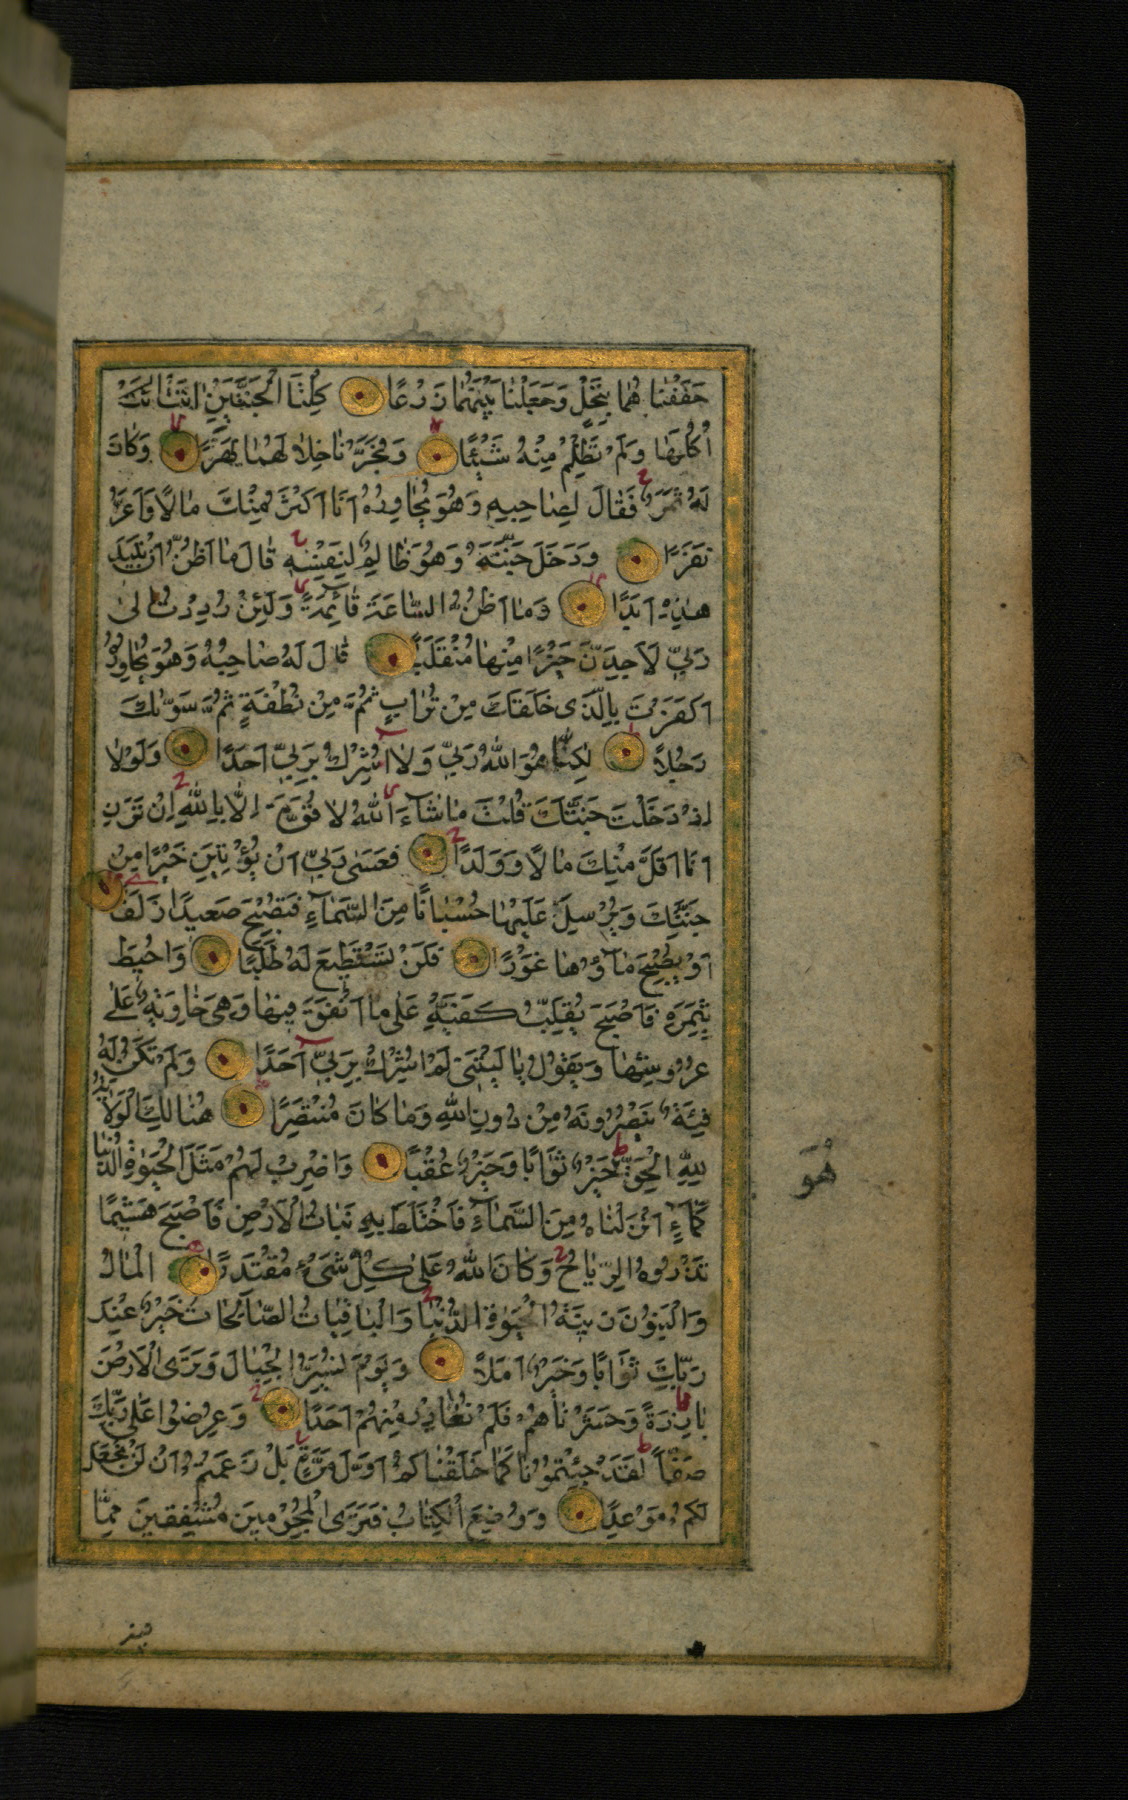 حَفَفْنَا هُمَا بِنَخْلٍ وَجَعَلْنَا بَيْنَهُمَا زَرْعًا كِلْتَا الْجَنَّتَيْنِ اتَتْ
اُكُلَهَا وَلَمْ تَظْلِمْ مِنْهُ شَيْئًا وَفَجَّرْنَا خِلَالَهُمَا نَهَرًا وَكَانَ
لَهُ ثَمَرٌ فَقَالَ لِصَاحِبِهِ وَهُوَ يُحَاوِرُهُ اَنَا اَكْثَرُ مِنْكَ مَالًا وَاَعَزُّ
نَفَرًا وَدَخَلَ جَنَّتَهُ وَهُوَ ظَالِمٌ لِنَفْسِهِ قَالَ مَا اَظُنُّ اَنْ تَبِيدَ
هٰذِهِ اَبَدًا وَمَا اَظُنُّ السَّاعَةَ قَائِمَةً وَلَئِنْ رُدِدْتُ اِلٰى
رَبِّي لَاَجِدَنَّ خَيْرًا مِنْهَا مُنْقَلَبًا قَالَ لَهُ صَاحِبُهُ وَهُوَ يُحَاوِرُهُ
اَكَفَرْتَ بِالَّذِى خَلَقَكَ مِنْ تُرَابٍ ثُمَّ مِنْ نُطْفَةٍ ثُمَّ سَوّٰيكَ
رَجُلًا لٰكِنَّا هُوَ اللّٰهُ رَبِّي وَلَا اُشْرِكُ بِرَبِّي اَحَدًا وَلَوْلَا
اِذْ دَخَلْتَ جَنَّتَكَ قُلْتَ مَا شَآءَ اللّٰهُ لَا قُوَّةَ اِلَّا بِاللّٰهِ اِنْ تَرَنِ
اَنَا اَقَلَّ مِنْكَ مَالًا وَوَلَدًا فَعَسٰى رَبِّي اَنْ يُؤْتِيَنِ خَيْرًا مِنْ
جَنَّتِكَ وَيُرْسِلَ عَلَيْهَا حُسْبَانًا مِنَ السَّمَآءِ فَتُصْبِحَ صَعِيدًا زَلَقًا
اَوْ يُصْبِحَ مَآؤُهَا غَوْرًا فَلَنْ تَسْتَطِيعَ لَهُ طَلَبًا وَاُحِيطَ
بِثَمَرِهِ فَاَصْبَحَ يُقَلِّبُ كَفَّيْهِ عَلٰى مَا اَنْفَقَ فِيهَا وَهِىَ خَاوِيَةٌ عَلٰى
عُرُوشِهَا وَيَقُولُ يَا لَيْتَنِى لَمْ اُشْرِكْ بِرَبِّي اَحَدًا وَلَمْ تَكُنْ لَهُ
فِئَةٌ يَنْصُرُونَهُ مِنْ دُونِ اللّٰهِ وَمَا كَانَ مُنْتَصِرًا هُنَالِكَ الْوَلَايَةُ
لِلّٰهِ الْحَقِّ خَيْرٌ ثَوَابًا وَخَيْرٌ عُقْبًا وَاضْرِبْ لَهُمْ مَثَلَ الْحَيٰوةِ الدُّنْيَا
كَمَآءٍ اَنْزَلْنَاهُ مِنَ السَّمَآءِ فَاخْتَلَطَ بِهِ نَبَاتُ الْاَرْضِ فَاَصْبَحَ هَشِيمًا
تَذْرُوهُ الرِّيَاحُ وَكَانَ اللّٰهُ عَلٰى كُلِّ شَىْءٍ مُقْتَدِرًا الْمَالُ
وَالْبَنُونَ زِينَةُ الْحَيٰوةِ الدُّنْيَا وَالْبَاقِيَاتُ الصَّالِحَاتُ خَيْرٌ عِنْدَ
رَبِّكَ ثَوَابًا وَخَيْرٌ اَمَلًا وَيَوْمَ نُسَيِّرُ الْجِبَالَ وَتَرَى الْاَرْضَ
بَارِزَةً وَحَشَرْنَاهُمْ فَلَمْ نُغَادِرْ مِنْهُمْ اَحَدًا وَعُرِضُوا عَلٰى رَبِّكَ
صَفًّا لَقَدْ جِئْتُمُونَا كَمَا خَلَقْنَاكُمْ اَوَّلَ مَرَّةٍ بَلْ زَعَمْتُمْ اَنْ لَنْ نَجْعَلَ
لَكُمْ مَوْعِدًا وَوُضِعَ الْكِتَابُ فَتَرَى الْمُجْرِمِينَ مُشْفِقِينَ مِمَّا
هُوَ